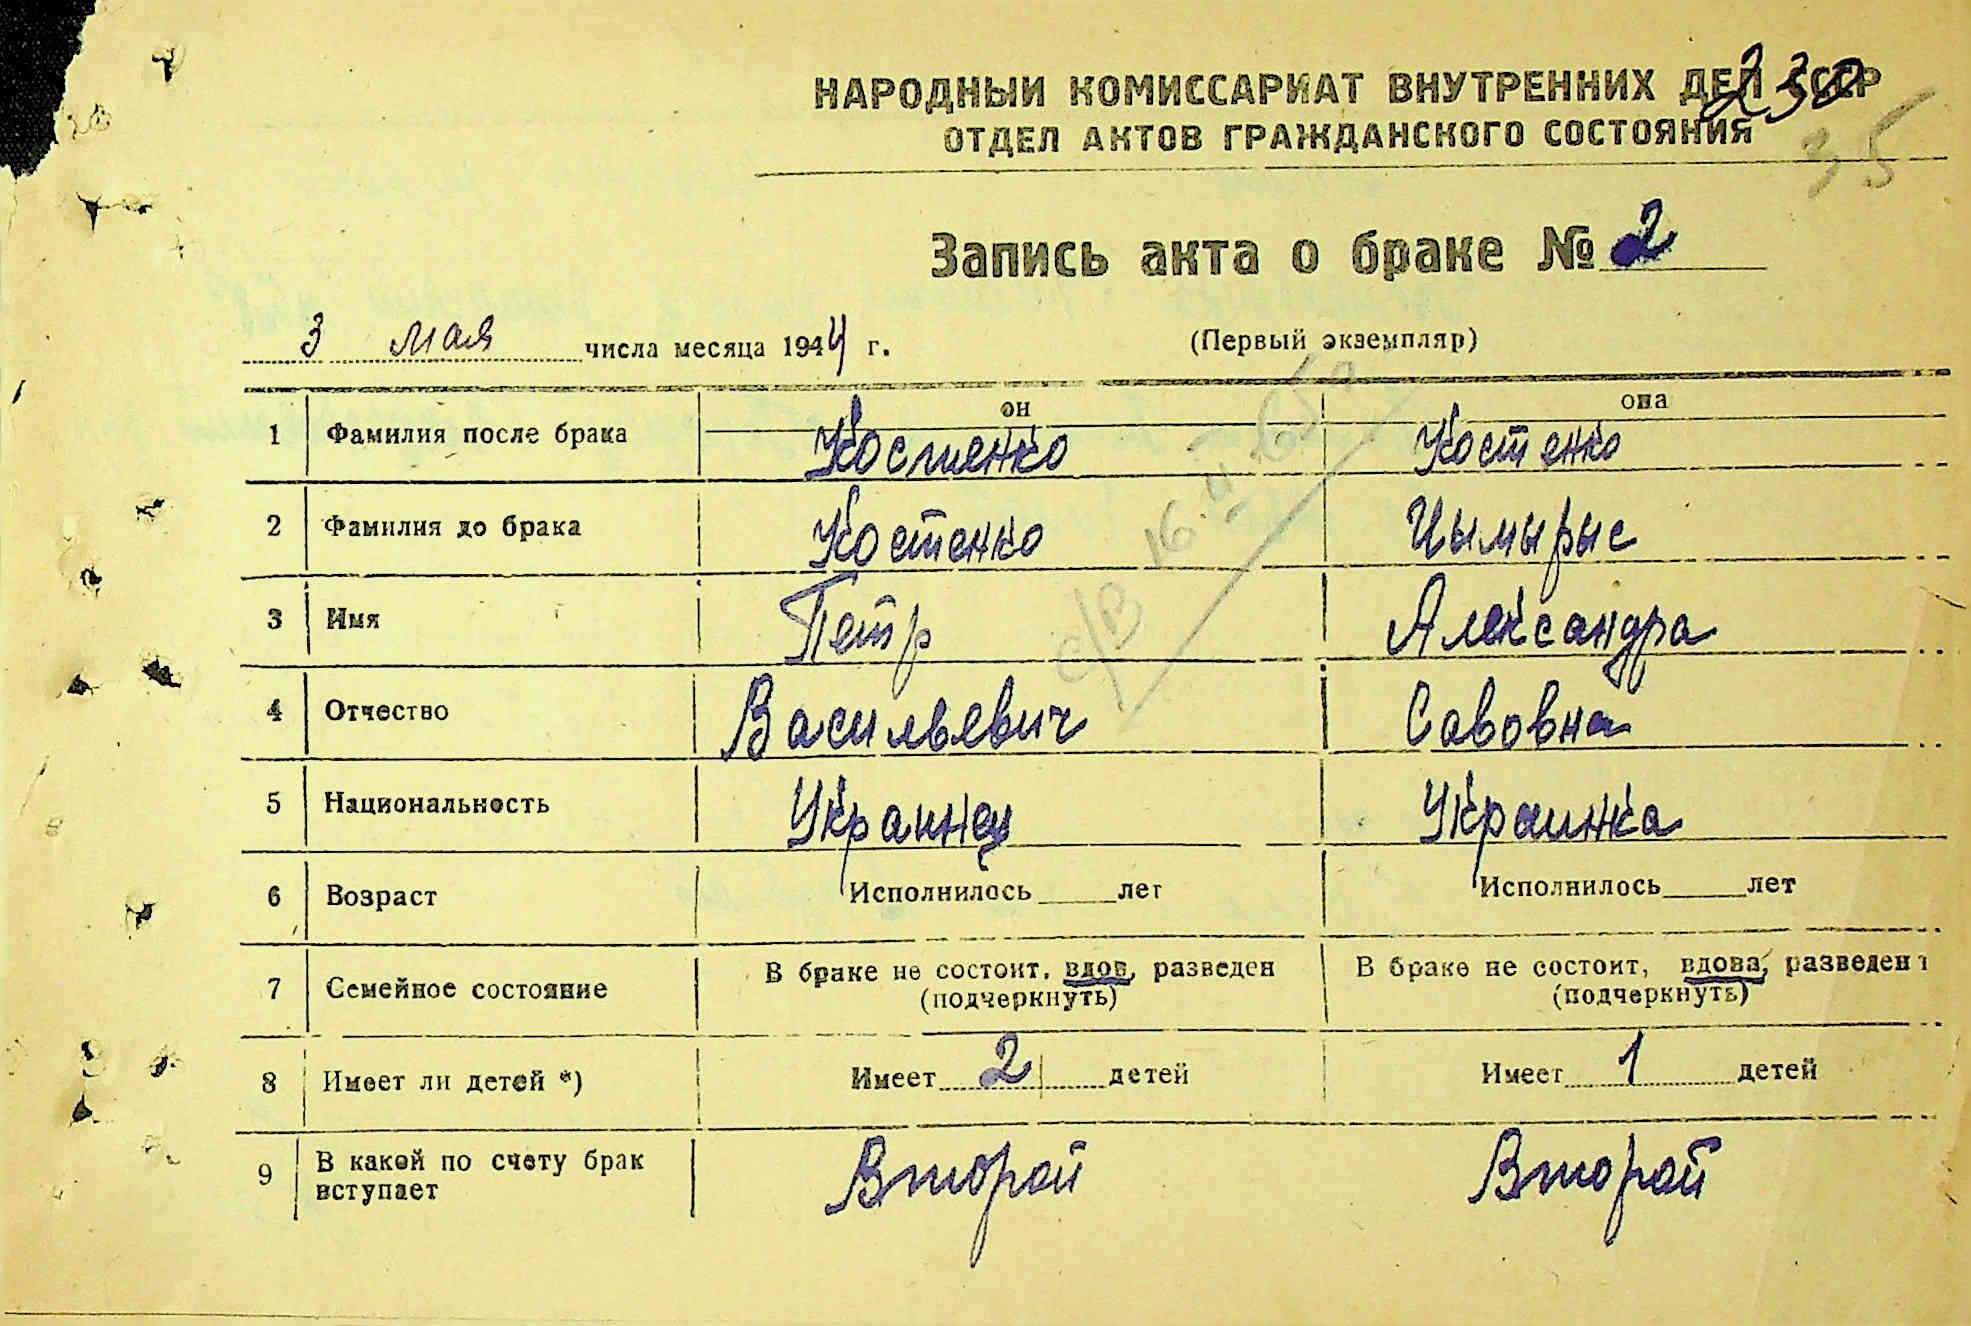 НАРОДНЫЙ КОМИССАРИАТ ВНУТРЕННИХ ДЕЛ СССР
230
ОТДЕЛ АКТОВ ГРАЖДАНСКОГО СОСТОЯНИЯ
35
Запись акта о браке № 2
3 мая числа месяца 1944 г. (Первый экземпляр)
он она
1 Фамилия после брака Костенко Костенко
2 Фамилия до брака Костенко Цымырыс
3 Имя Петр Александра
4 Отчество Васильевич Савовна
5 Национальность Украинец Украинка
6 Возраст Исполнилось лет Исполнилось лет
7 Семейное состояние В браке не состоит, вдов, разведен В браке не состоит, вдова, разведен
(подчеркнуть) (подчеркнуть)
8 Имеет ли детей *) Имеет 2 детей Имеет 1 детей
9 В какой по счету брак
вступает Второй Второй